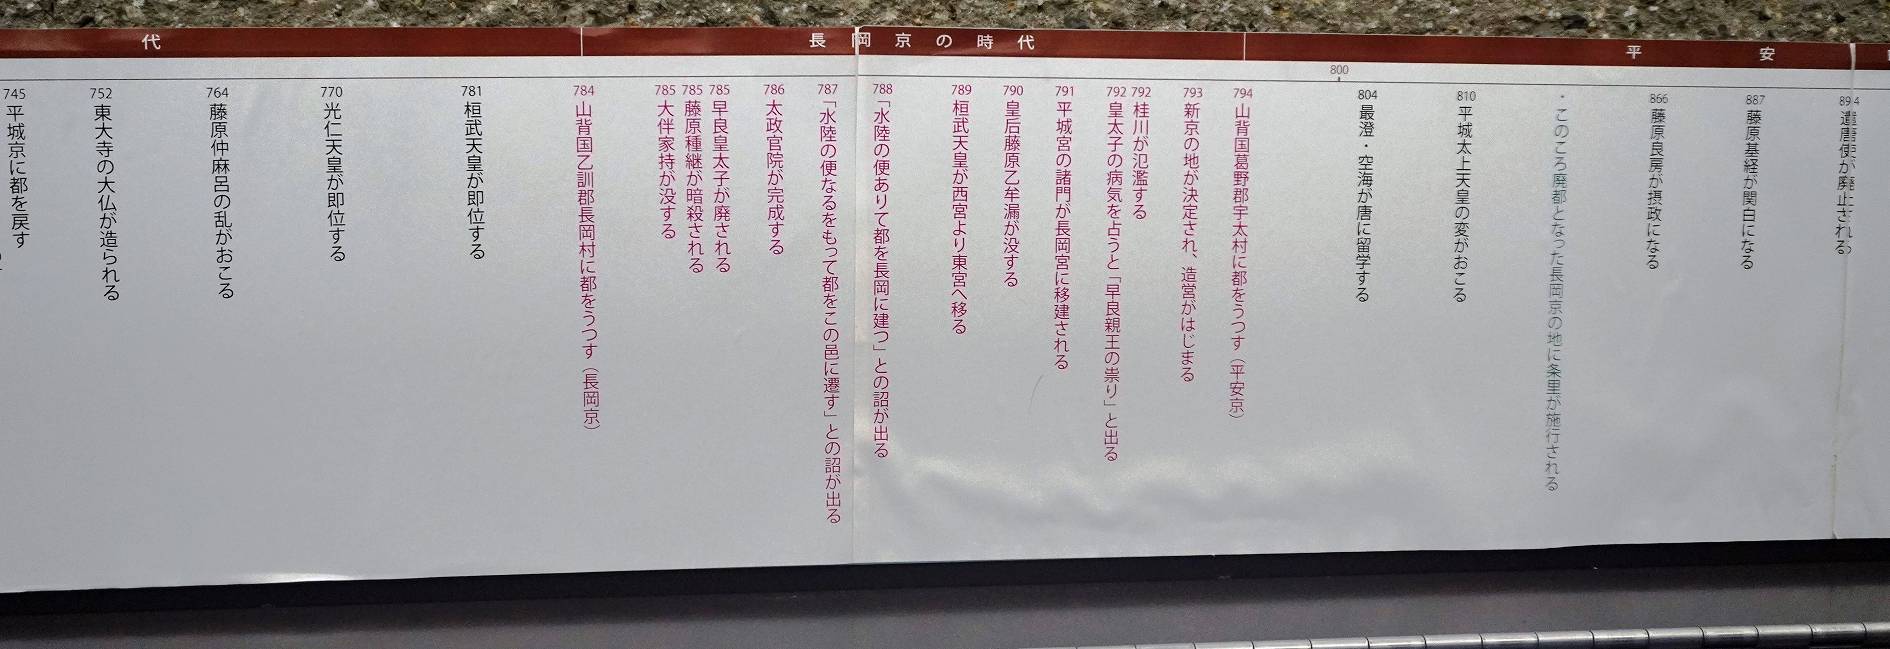 代
長岡京の時代
平安
800
745 平城京に都を戻す
752 東大寺の大仏が造られる
764 藤原仲麻呂の乱がおこる
770 光仁天皇が即位する
781 桓武天皇が即位する
784 山背国乙訓郡長岡村に都をうつす（長岡京）
785 大伴家持が没する
785 藤原種継が暗殺される
785 早良皇太子が廃される
786 太政官院が完成する
787 「水陸の便なるをもって都をこの邑に遷す」との詔が出る
788 「水陸の便ありて都を長岡に建つ」との詔が出る
789 桓武天皇が西宮より東宮へ移る
790 皇后藤原乙牟漏が没する
791 平城宮の諸門が長岡宮に移建される
792 皇太子の病気を占うと「早良親王の祟り」と出る
792 桂川が氾濫する
793 新京の地が決定され、造営がはじまる
794 山背国葛野郡宇太村に都をうつす（平安京）
804 最澄・空海が唐に留学する
810 平城太上天皇の変がおこる
・このころ廃都となった長岡京の地に条里が施行される
866 藤原良房が摂政になる
887 藤原基経が関白になる
894 遣唐使が廃止される